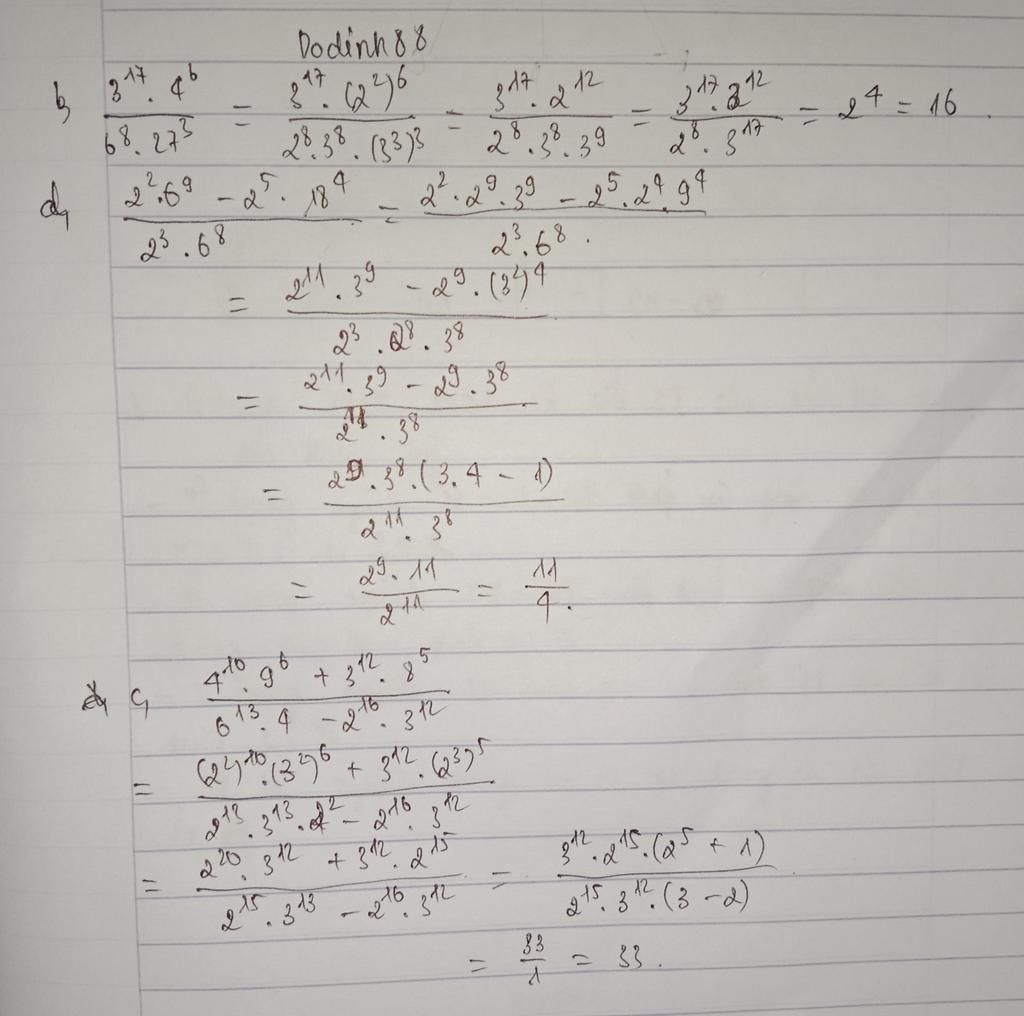 Dodinh88
b, \frac{3^{17} . 4^6}{6^8 . 27^3} = \frac{3^{17} . (2^2)^6}{2^8 . 3^8 . (3^3)^3} = \frac{3^{17} . 2^{12}}{2^8 . 3^8 . 3^9} = \frac{3^{17} . 2^{12}}{2^8 . 3^{17}} = 2^4 = 16 .
d, \frac{2^2 . 6^9 - 2^5 . 18^4}{2^3 . 6^8} = \frac{2^2 . 2^9 . 3^9 - 2^5 . 2^4 . 9^4}{2^3 . 6^8 .}
= \frac{2^{11} . 3^9 - 2^9 . (3^2)^4}{2^3 . 2^8 . 3^8}
= \frac{2^{11} . 3^9 - 2^9 . 3^8}{2^{11} . 3^8}
= \frac{2^9 . 3^8 . (3 . 4 - 1)}{2^{11} . 3^8}
= \frac{2^9 . 11}{2^{11}} = \frac{11}{4} .
c, \frac{4^{10} . 9^6 + 3^{12} . 8^5}{6^{13} . 4 - 2^{16} . 3^{12}}
= \frac{(2^2)^{10} . (3^2)^6 + 3^{12} . (2^3)^5}{2^{13} . 3^{13} . 2^2 - 2^{16} . 3^{12}}
= \frac{2^{20} . 3^{12} + 3^{12} . 2^{15}}{2^{15} . 3^{13} - 2^{16} . 3^{12}} = \frac{3^{12} . 2^{15} . (2^5 + 1)}{2^{15} . 3^{12} . (3 - 2)}
= \frac{33}{1} = 33 .